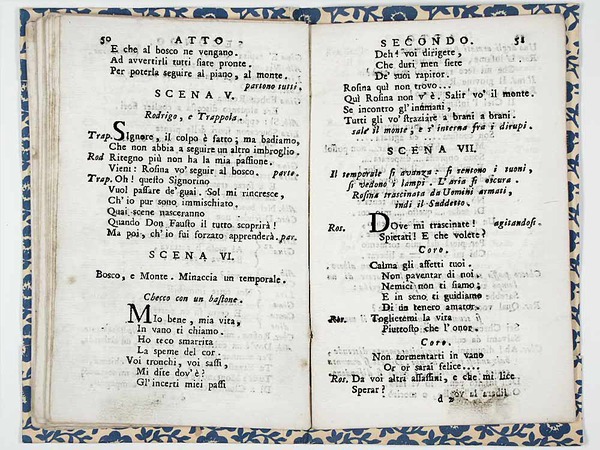 50 ATTO
E che al bosco ne vengano.
Ad avvertirli tutti siate pronte.
Per poterla seguire al piano, al monte.
partono tutti.
SCENA V.
Rodrigo, e Trappola.
Trap. SIgnore, il colpo è fatto; ma badiamo,
Che non abbia a seguire un altro imbroglio.
Rod Ritegno più non ha la mia passione.
Vieni: Rosina vo' seguir al bosco. parte.
Trap. Oh! questo Signorino
Vuol passare de' guai. Sol mi rincresce,
Ch' io pur sono immischiato.
Quai scene nasceranno
Quando Don Fausto il tutto scoprirà!
Ma poi, ch' io fui forzato apprenderà. par.
SCENA VI.
Bosco, e Monte. Minaccia un temporale.
Checco con un bastone.
MIo bene, mia vita,
In vano ti chiamo.
Ho teco smarrita
La speme del cor.
Voi tronchi, voi sassi,
Mi dite dov' è?
Gl' incerti miei passi
SECONDO. 51
Deh! voi dirigete,
Che duri men siete
De' suoi rapitor.
Rosina quì non trovo...
Quì Rosina non v' è. Salir vo' il monte.
Se incontro gl' indegni,
Tutti gli vo' straziare a brani a brani.
sale il monte, e s' interna fra i dirupi.
SCENA VII.
Il temporale si avanza: si sentono i tuoni,
si vedono i lampi. L' aria si oscura.
Rosina trascinata da Uomini armati,
indi il Suddetto.
Ros. DOve mi trascinate! agitandosi.
Spietati! E che volete?
Coro.
Calma gli affetti tuoi.
Non paventar di noi.
Nemici non ti siamo;
E in seno ti guidiamo
Di un tenero amator.
Ros. Toglietemi la vita
Piuttosto che l' onor.
Coro.
Non tormentarti in vano
Or or sarai felice....
Ros. Da voi altri assassini, e che mi lice
Sperar?